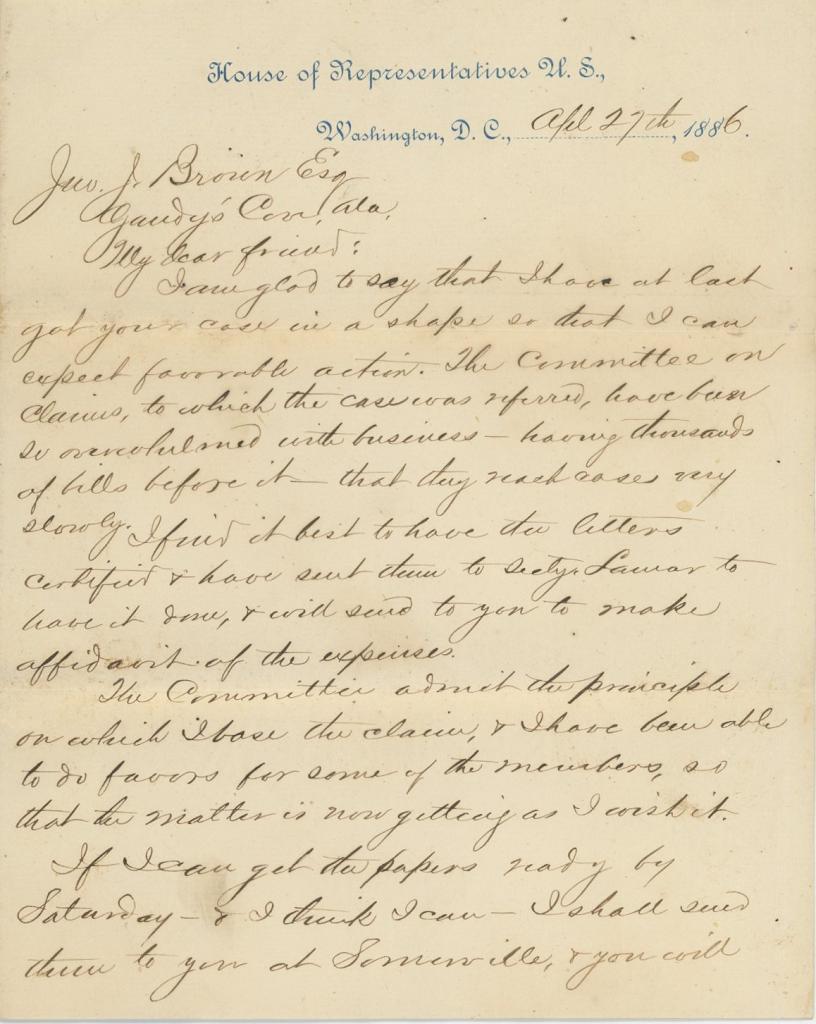 House of Representatives U. S.,
Washington, D. C., Apl 27th, 1886.
Jno. J. Brown Esq
Gandy's Cove, Ala,
My dear friend:
I am glad to say that I have at last
got your case in a shape so that I can
expect favorable action. The Committee on
Claims, to which the case was referred, have been
so overwhelmed with business — having thousands
of bills before it — that they reach cases very
slowly. I find it best to have the letters
certified & have sent them to Secty. Lamar to
have it done, & will send to you to make
affidavit of the expenses.
The Committee admit the principle
on which I base the claim, & I have been able
to do favors for some of the members, so
that the matter is now getting as I wish it.
If I can get the papers ready by
Saturday — & I think I can — I shall send
them to you at Somerville, & you will